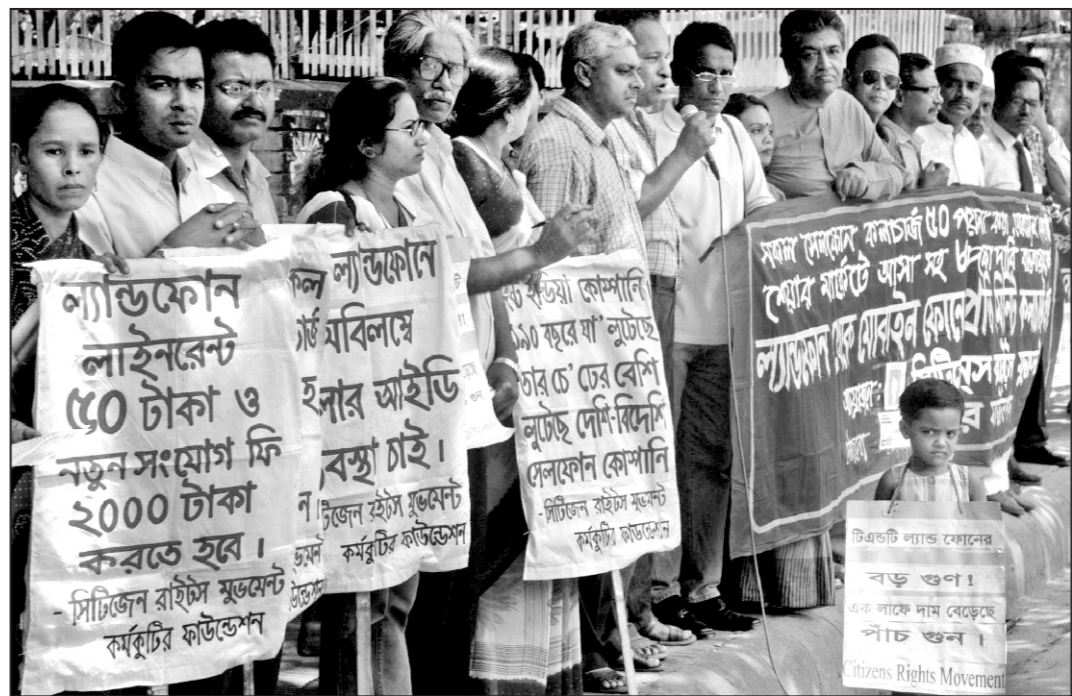 ল্যান্ডফোন
লাইনরেন্ট
৫০ টাকা ও
নতুন সংযোগ ফি
২০০০ টাকা
করতে হবে।
- সিটিজেন রাইটস মুভমেন্ট
কর্মকুটির ফাউন্ডেশন
ল্যান্ডফোনে
অবিলম্বে
আইডি
চাই।
রাইটস মুভমেন্ট
কর্মকুটির ফাউন্ডেশন
ইন্ডিয়া কোম্পানি
১৯০ বছরে যা' লুটেছে
তার চে' ঢের বেশি
লুটেছে দেশি-বিদেশি
সেলফোন কোম্পানি
- সিটিজেন রাইটস মুভমেন্ট
কর্মকুটির ফাউন্ডেশন
সকল সেলফোন কলচার্জ ৫০ পয়সা করা
শেয়ার মার্কেটে আসা সহ
ল্যান্ডফোন
টিএন্ডটি ল্যান্ড ফোনের
বড় গুণ!
এক লাফে দাম বেড়েছে
পাঁচ গুন।
Citizens Rights Movement